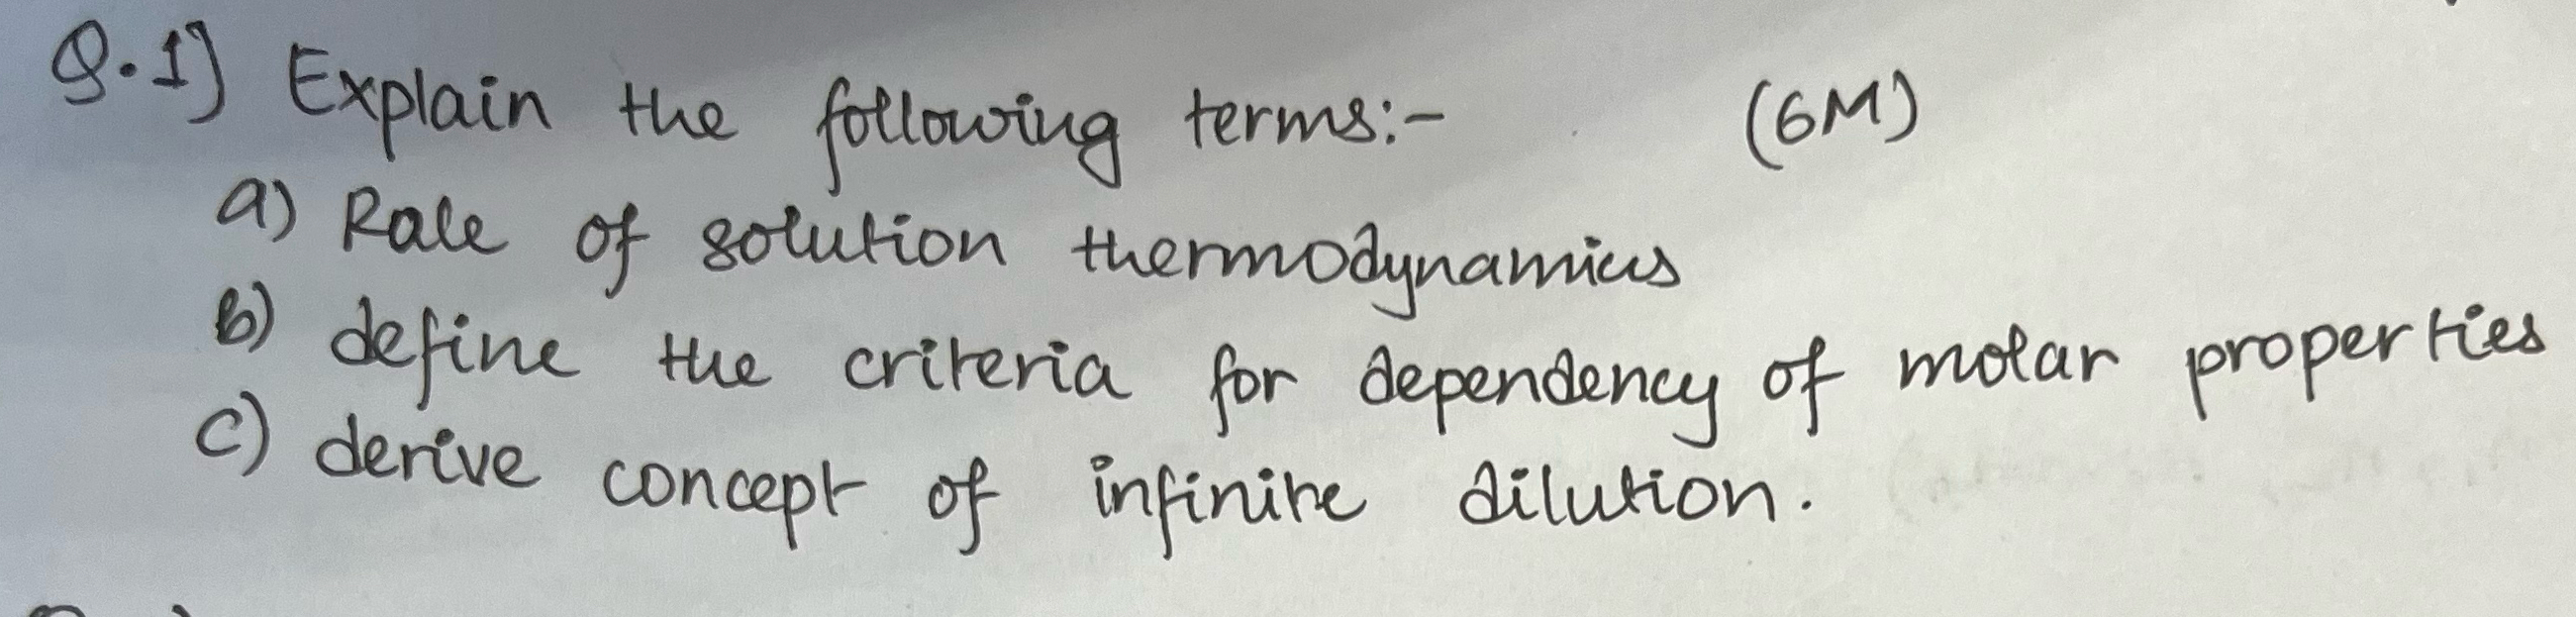 Q.1] Explain the following terms:- (6M)
a) Role of solution thermodynamics
b) define the criteria for dependency of molar properties
c) derive concept of infinite dilution.